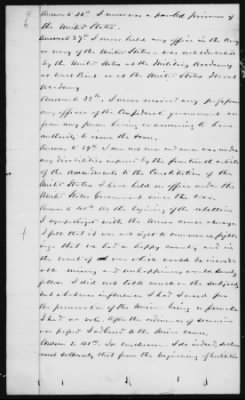 Answer 36th I never was a paroled prisoner of
the United States.
Answer 37th I never held any office in the Army
or navy of the United States, was not educated
by the United States at the Military Academy
at West Point or at the United States Naval
Academy
Answer 38th, I never received any pass from
any officer of the Confederate government or
from any person having or assuming to have
authority to issue the same.
Answer to 39th I am not now and never was under
any disabilities imposed by the fourteenth article
of the Amendments to the Constitution of the
United States I have held no office under the
United States Government since the war.
Answer to 40th At the beginning of the rebellion
I sympathized with the Union cause
I felt that it was not right to commence fighting
that we had a happy country and in
the event of war which would be
misery and unhappiness would
follow I did not talk much on the subject
but whatever influence I had I used for
the preservation of the Union
I had no vote. After the ordinance of secession
was passed I adhered to the Union cause.
Answer to 41st. In conclusion I do indeed, declare
most solemnly that from the beginning of hostilities